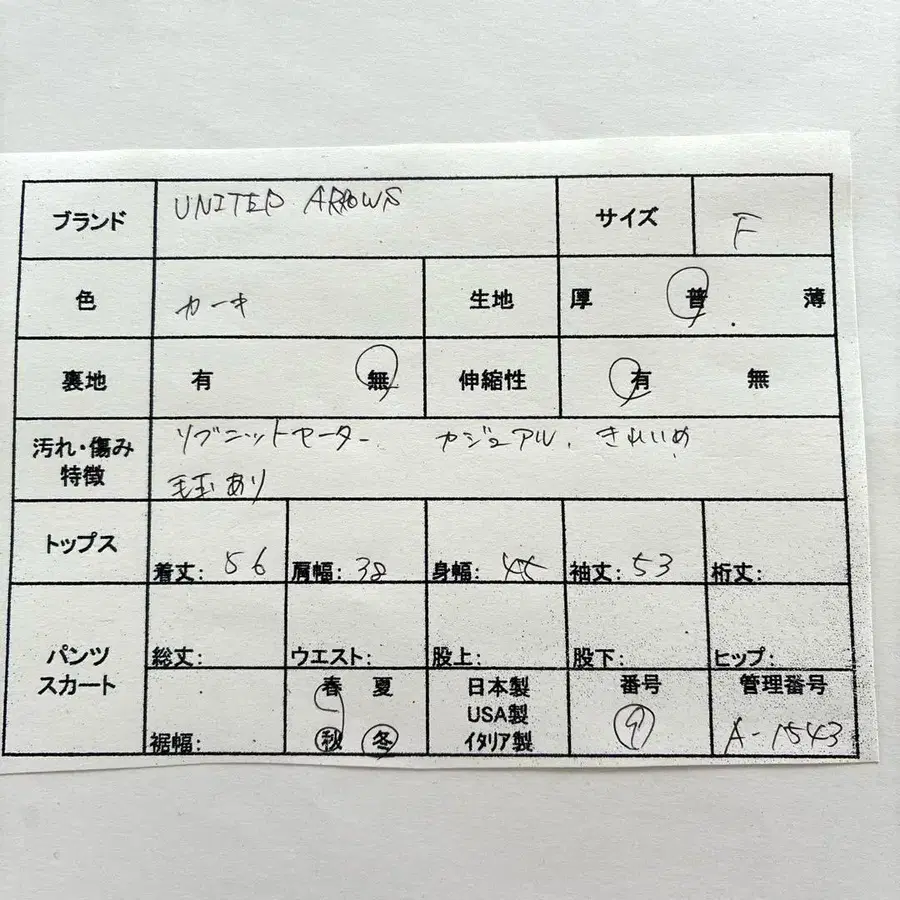 ブランド UNITED ARROWS サイズ F
色 カーキ 生地 厚 普 薄
裏地 有 無 伸縮性 有 無
汚れ・傷み 特徴 リブニットセーター カジュアル、きれいめ
毛玉あり
トップス 着丈: 56 肩幅: 38 身幅: 45 袖丈: 53 裄丈:
パンツ スカート 総丈: ウエスト: 股上: 股下: ヒップ:
裾幅: 春 夏 秋 冬 日本製 USA製 イタリア製 番号 9 管理番号 A-1543